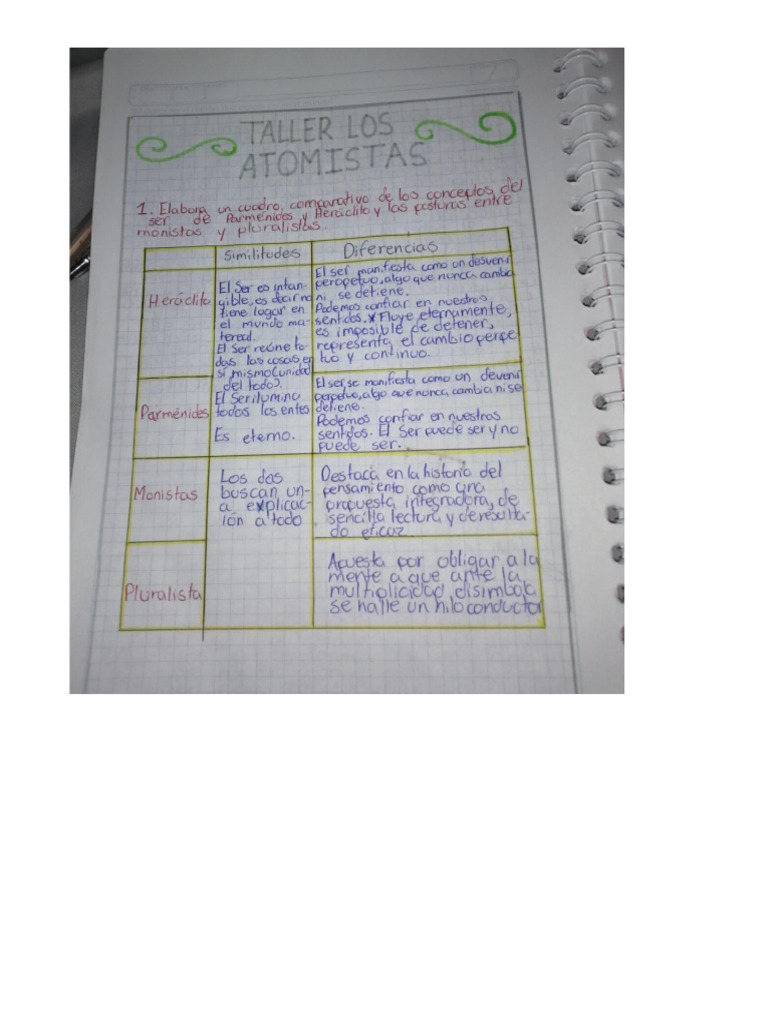 TALLER LOS
ATOMISTAS
1. Elabora un cuadro, comparativo de los conceptos del
ser de Parménides y Heráclito y las posturas entre
monistas y pluralistas.
Similitudes
Diferencias
Heráclito
El Ser es intan-
gible, es decir no
tiene lugar en
el mundo ma-
tereal.
El Ser reúne to
das las cosas, en
sí mismo (unidad
del todo).
El ser manifiesta como un desveni
peropetuo, algo que nunca cambia
ni, se detiene.
Podemos confiar en nuestros
sentidos. x Fluye eternamente,
es imposible de detener,
representa el cambio perpe
tuo y continuo.
Parménides
El Ser ilumina
todos los entes
Es eterno.
El ser se manifiesta como un devenir
perpetuo, algo que nunca cambia ni se
detiene.
Podemos confiar en nuestras
sentidos. El Ser puede ser y no
puede ser.
Monistas
Los dos
buscan un-
a explicac-
ión a todo
Destaca en la historia del
pensamiento como una
propuesta integradora, de
sencilla lectura y de resulta-
do eficaz.
Pluralista
Apuesta por obligar a la
mente a que ante la
multiplicidad disimbola
se halle un hilo conductor